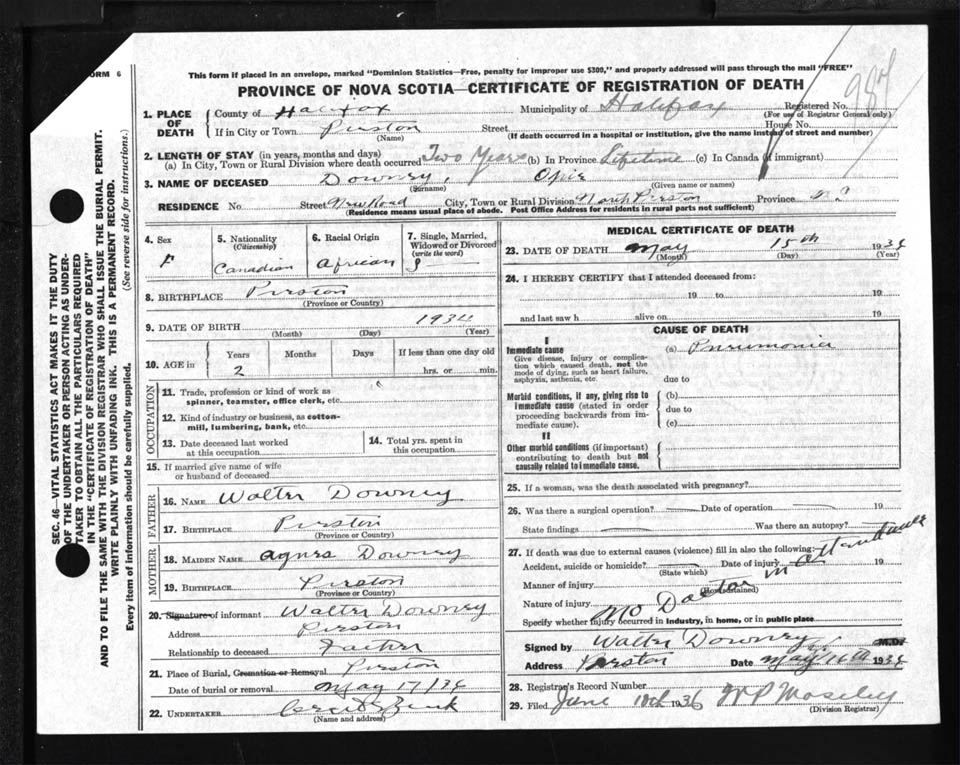 FORM 6
This form if placed in an envelope, marked "Dominion Statistics—Free, penalty for improper use $300," and properly addressed will pass through the mail "FREE"
PROVINCE OF NOVA SCOTIA—CERTIFICATE OF REGISTRATION OF DEATH
1. PLACE OF DEATH
County of Halifax Municipality of Halifax Registered No.
(For use of Registrar General only)
987
If in City or Town Preston Street House No.
(Name) (If death occurred in a hospital or institution, give the name instead of street and number)
2. LENGTH OF STAY (in years, months and days)
(a) In City, Town or Rural Division where death occurred Two Years (b) In Province Lifetime (c) In Canada (if immigrant)
3. NAME OF DECEASED Downey, Opie
(Surname) (Given name or names)
RESIDENCE No Street New Road City, Town or Rural Division North Preston Province
(Residence means usual place of abode. Post Office Address for residents in rural parts not sufficient)
4. Sex F
5. Nationality (Citizenship) Canadian
6. Racial Origin African
7. Single, Married, Widowed or Divorced (write the word) S
8. BIRTHPLACE Preston
(Province or Country)
9. DATE OF BIRTH 1934
(Month) (Day) (Year)
10. AGE in Years Months Days If less than one day old
2 hrs. or min.
OCCUPATION
11. Trade, profession or kind of work as spinner, teamster, office clerk, etc.
12. Kind of industry or business, as cotton-mill, lumbering, bank, etc.
13. Date deceased last worked at this occupation
14. Total yrs. spent in this occupation
15. If married give name of wife or husband of deceased
FATHER
16. NAME Walter Downey
17. BIRTHPLACE Preston
(Province or Country)
MOTHER
18. MAIDEN NAME Agnes Downey
19. BIRTHPLACE Preston
(Province or Country)
20. Signature of informant Walter Downey
Address Preston
Relationship to deceased Father
21. Place of Burial, Cremation or Removal Preston
Date of burial or removal May 17/36
22. UNDERTAKER
(Name and address)
MEDICAL CERTIFICATE OF DEATH
23. DATE OF DEATH May 15th 1936
(Month) (Day) (Year)
24. I HEREBY CERTIFY that I attended deceased from:
19 to 19
and last saw h alive on 19
CAUSE OF DEATH
I
Immediate cause (a) Pneumonia
Give disease, injury or complication which caused death, not the mode of dying, such as heart failure, asphyxia, asthenia, etc.
due to
Morbid conditions, if any, giving rise to immediate cause (stated in order proceeding backwards from immediate cause).
(b)
due to
(c)
II
Other morbid conditions (if important) contributing to death but not causally related to immediate cause.
25. If a woman, was the death associated with pregnancy?
26. Was there a surgical operation? Date of operation 19
State findings Was there an autopsy?
27. If death was due to external causes (violence) fill in also the following:
Accident, suicide or homicide? Date of injury 19
(State which)
Manner of injury
(How sustained)
Nature of injury
No Doctor in attendance
Specify whether injury occurred in industry, in home, or in public place
Signed by Walter Downey M.D.
Address Preston Date May 16th 1936
28. Registrar's Record Number
29. Filed June 10th 1936 W P Moseley
(Division Registrar)
SEC. 46—VITAL STATISTICS ACT MAKES IT THE DUTY
OF THE UNDERTAKER OR PERSON ACTING AS UNDER-
TAKER TO OBTAIN ALL THE PARTICULARS REQUIRED
IN THE "CERTIFICATE OF REGISTRATION OF DEATH"
AND TO FILE THE SAME WITH THE DIVISION REGISTRAR WHO SHALL ISSUE THE BURIAL PERMIT.
WRITE PLAINLY WITH UNFADING INK. THIS IS A PERMANENT RECORD.
Every item of information should be carefully supplied. (See reverse side for instructions.)